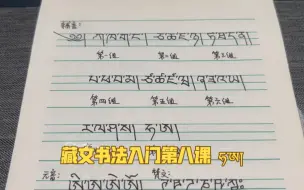 辅音：
༄༅། ཀ།ཁ།ག།ང། ཅ།ཆ།ཇ།ཉ། ཏ།ཐ།ད།ན།
第一组 第二组 第三组
པ།ཕ།བ།མ། ཙ།ཚ།ཛ།ཝ། ཞ།ཟ།འ།ཡ།
第四组 第五组 第六组
ར།ལ།ཤ།ས། ཧ།ཨ།
藏文书法入门第八课 ཧ།ཨ།
元音：
ཨི།ཨུ།ཨེ།ཨོ།